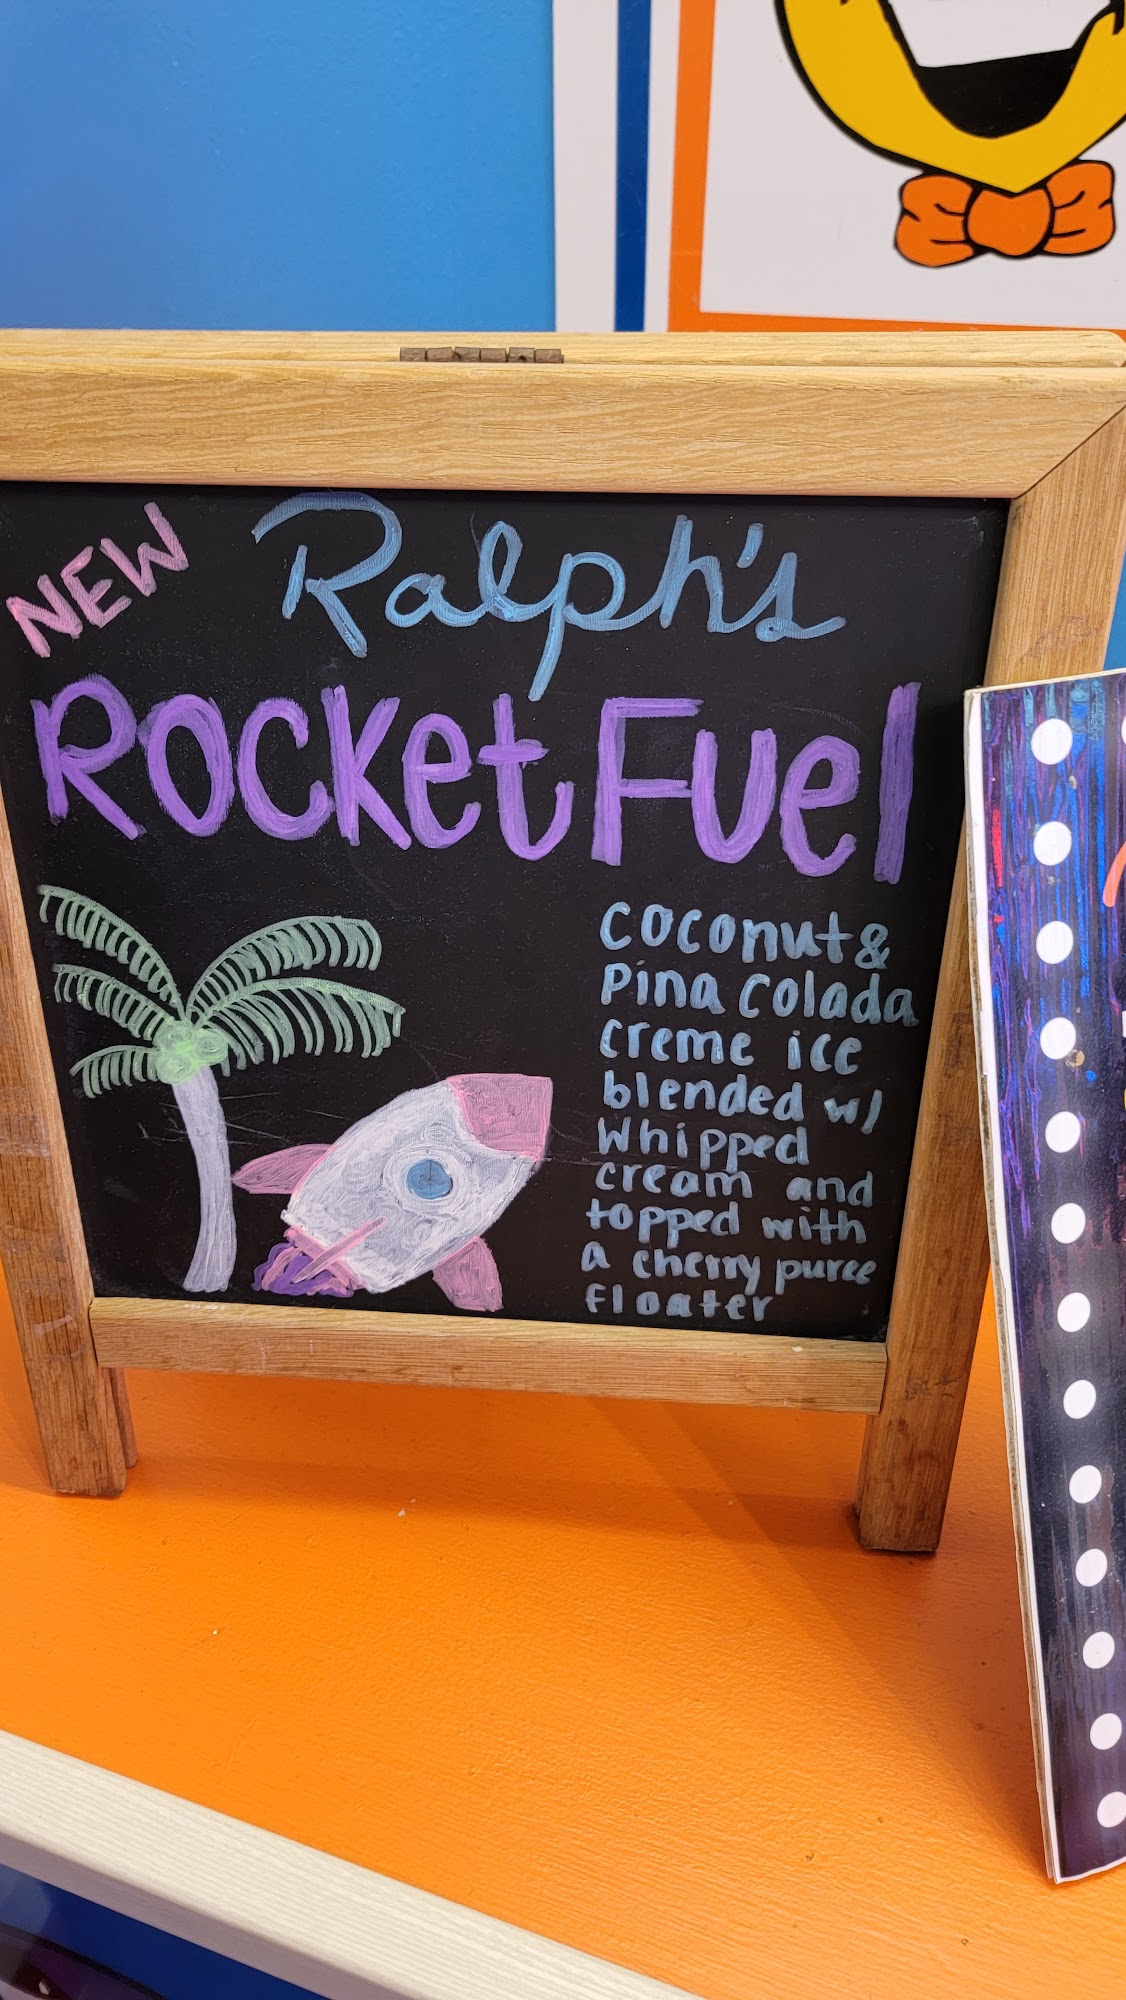 NEW
Ralph's
Rocket Fuel
coconut &
Pina Colada
creme ice
blended w/
whipped
cream and
topped with
a cherry puree
floater